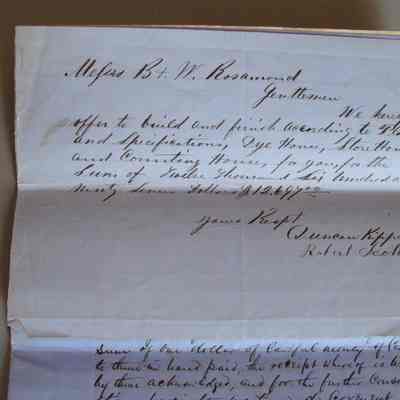 Messrs B & W. Rosamond
Gentlemen
We here
offer to build and finish according to
and Specifications, Dye House, Store Hou
and Counting House, for you, for the
Sum of Twelve Thousand Six Hundred a
Ninety Seven Dollars $12,697.00
Yours Respt
Duncan
Robert Scott
sum of one dollar of lawful money of
to them in hand paid, the receipt where of is
by them acknowledged, and for the further Cons